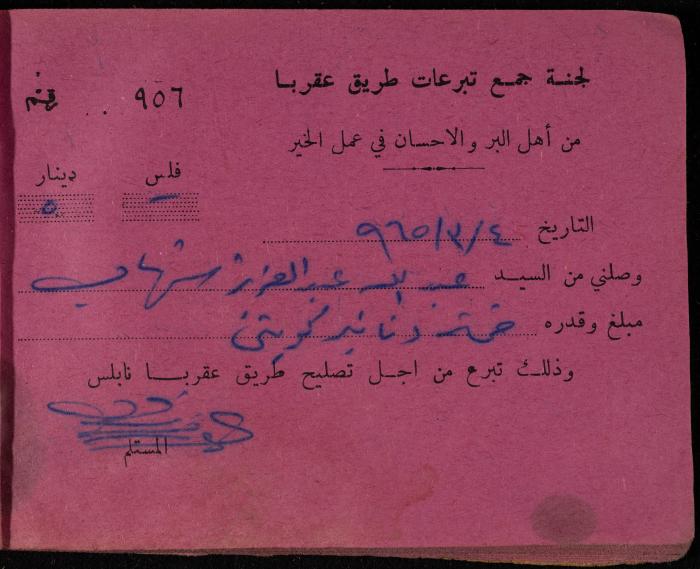 لجنة جمع تبرعات طريق عقربا
رقم ٩٥٦
من أهل البر والاحسان في عمل الخير
فلس دينار
— ٥
التاريخ ٩٦٥/٣/٤
وصلني من السيد عبد الله عبد العزيز شهاب
مبلغ وقدره خمسة دنانير كويتي
وذلك تبرع من اجل تصليح طريق عقربا نابلس
المستلم